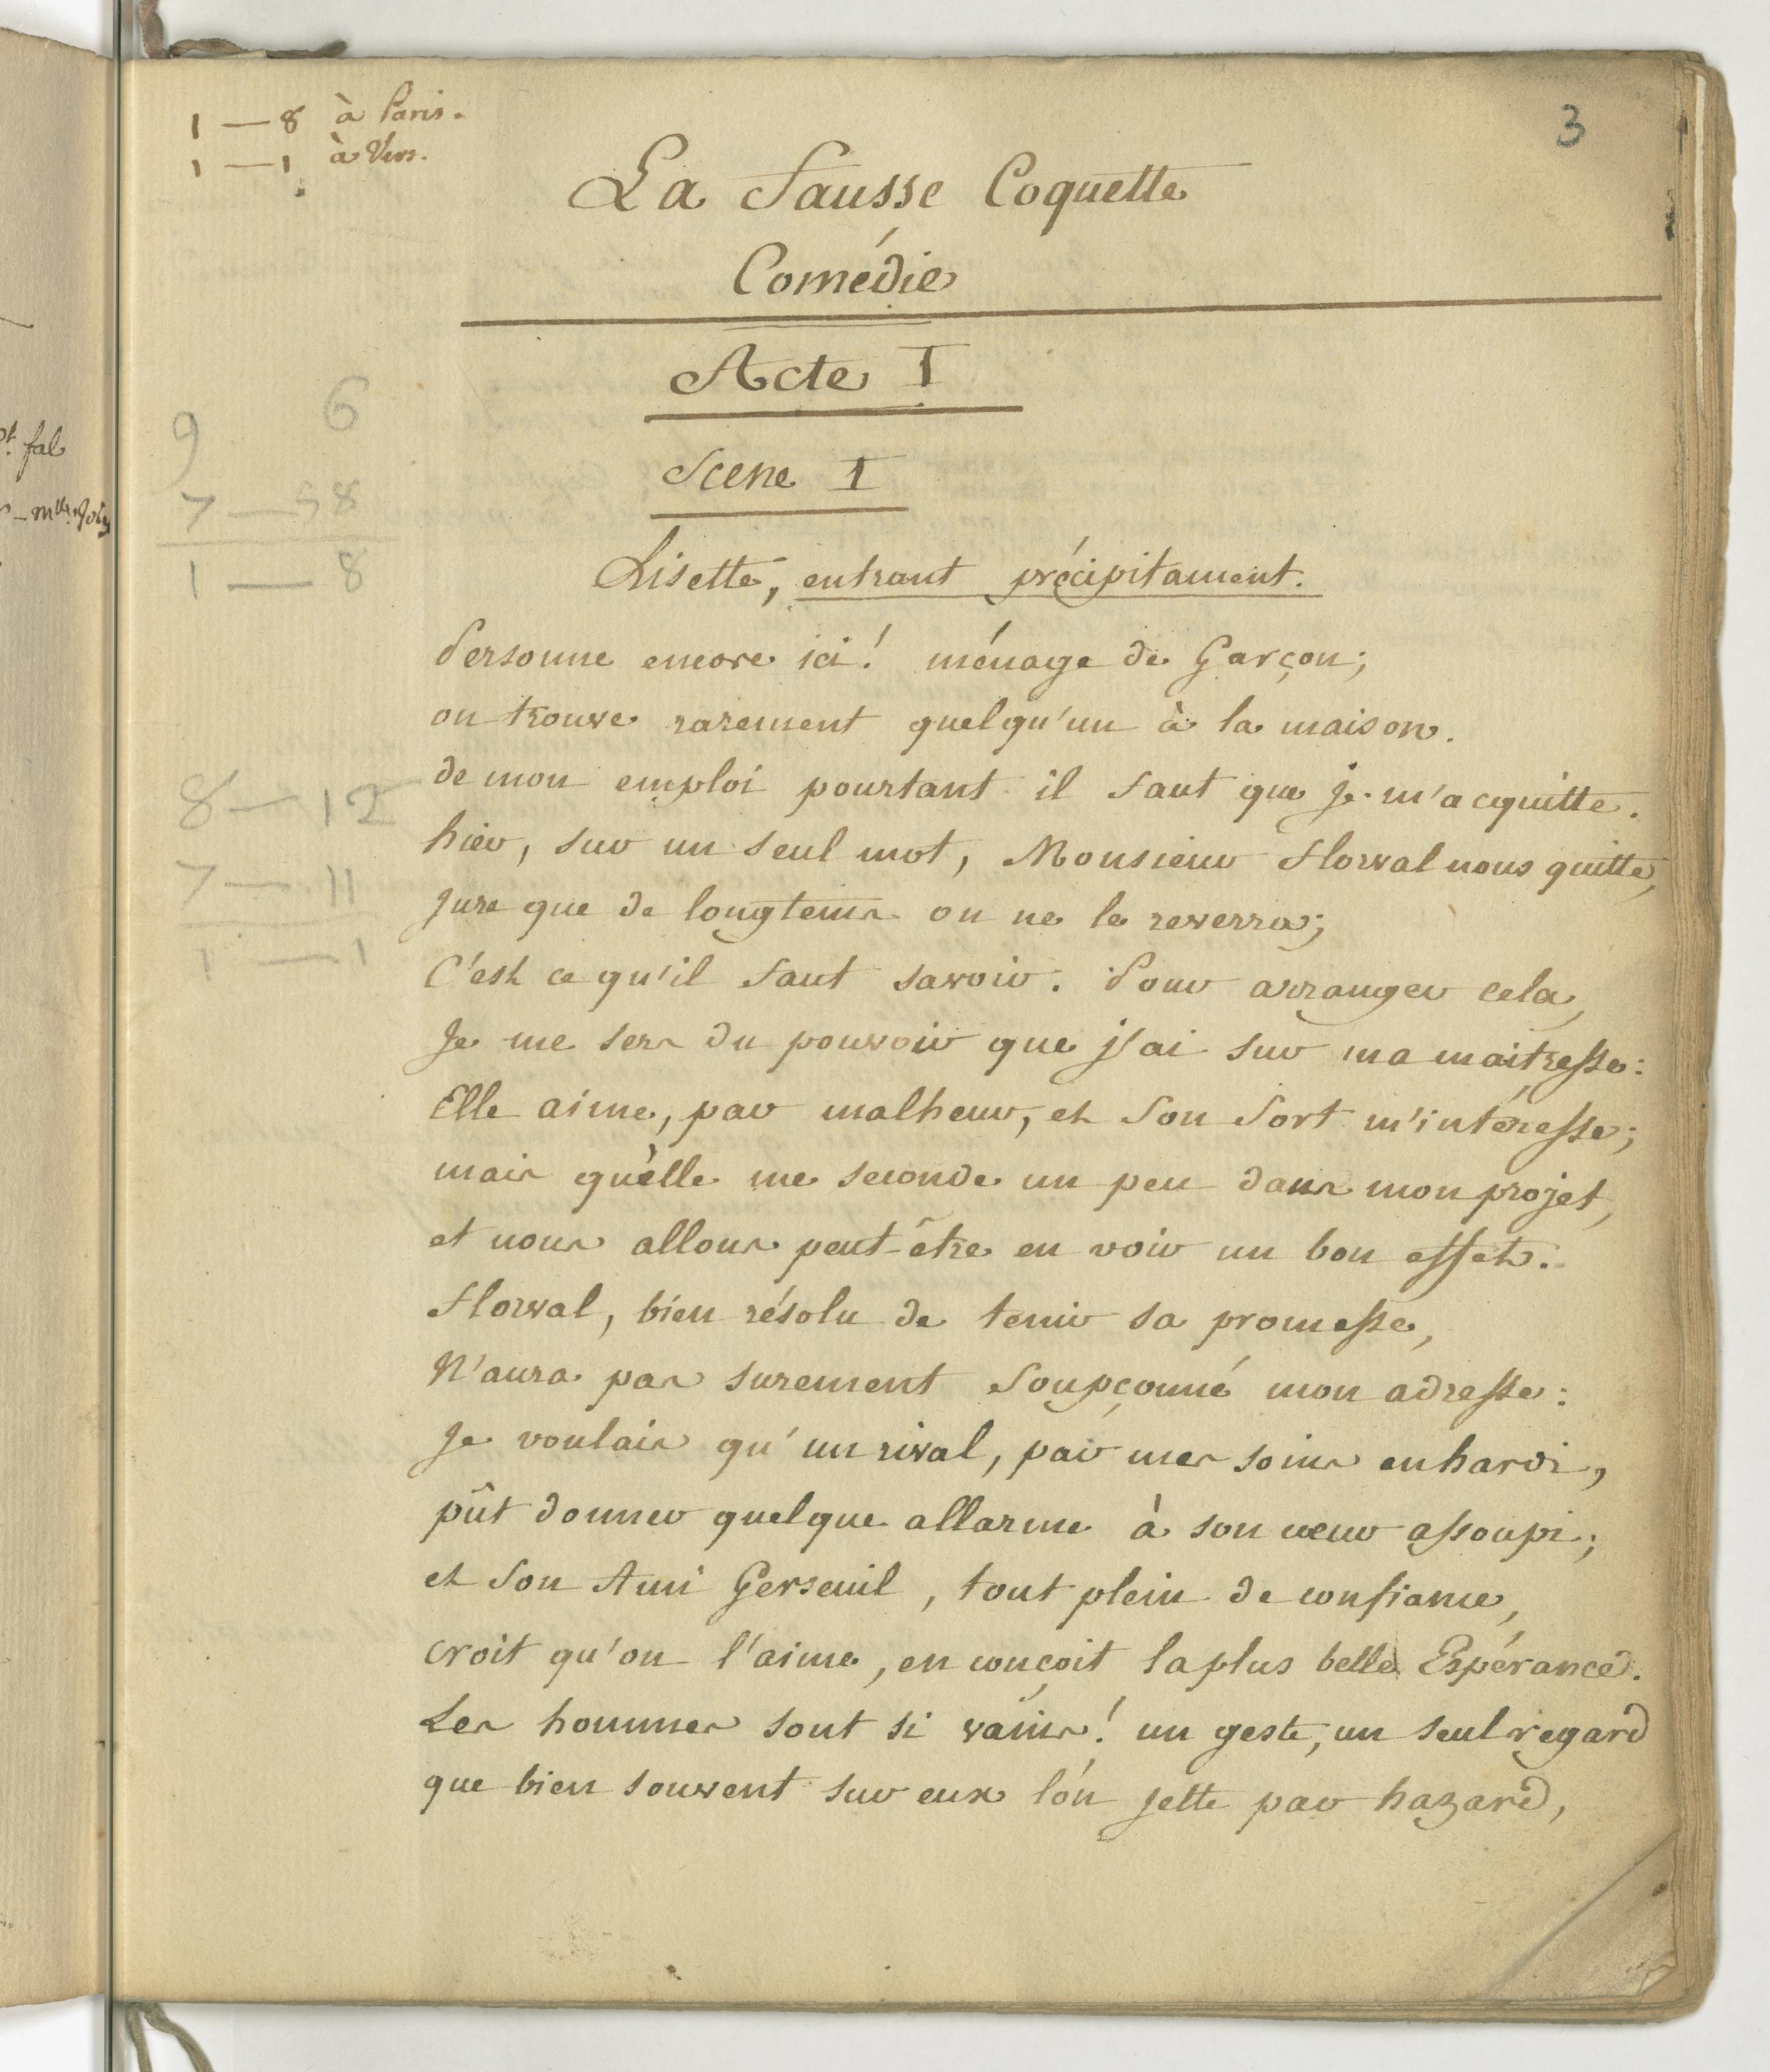 1 — 8 à Paris.
1 — 1 à Vers.
3
La fausse Coquette
Comédie
Acte I
Scene I
Lisette, entrant précipitament.
Personne encore ici! ménage de Garçon;
on trouve rarement quelqu'un à la maison.
de mon emploi pourtant il faut que je m'acquitte.
hier, sur un seul mot, Monsieur florval nous quitte,
jure que de longtems on ne le reverra;
C'est ce qu'il faut savoir. Pour arranger cela,
Je me sers du pouvoir que j'ai sur ma maitresse:
Elle aime, par malheur, et son sort m'intéresse;
mais qu'elle me seconde un peu dans mon projet,
et nous allons peut-être en voir un bon effet.
florval, bien résolu de tenir sa promesse,
N'aura pas surement soupçonné mon adresse:
Je voulais qu'un rival, par mes soins enhardi,
pût donner quelque allarme à son cœur assoupi;
et son Ami Gerseuil, tout plein de confiance,
croit qu'on l'aime, en conçoit la plus belle Espérance.
Les hommes sont si vains! un geste, un seul regard
que bien souvent sur eux l'on jette par hazard,
9 6
7 — 58
1 — 8
8 — 12
7 — 11
1 — 1
pt. fal